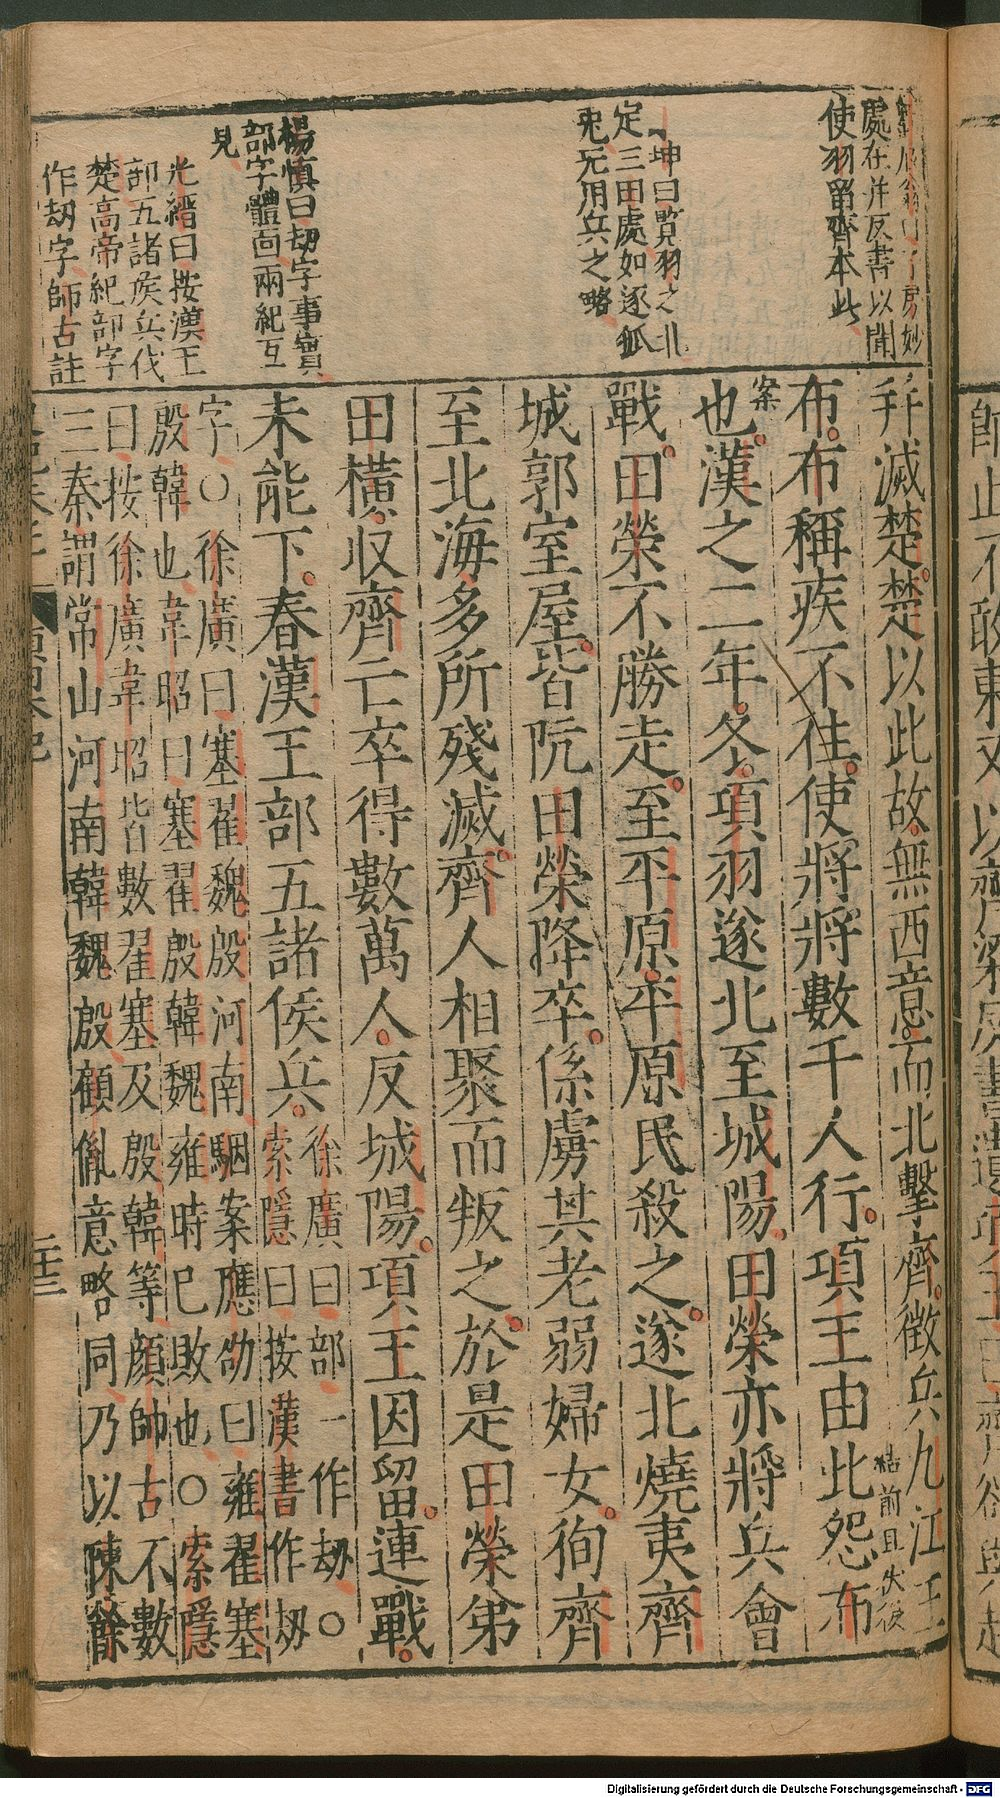 處在幷反書以聞
使羽留齊本此
坤曰覧羽之北
定三田處如逐狐
兎无用兵之略
楊慎曰刼字事實
部字體面兩紀互
見
光縉曰按漢王
部五諸侯兵伐
楚高帝紀部字
作刼字師古註
幷滅楚楚以此故無西意而北擊齊徵兵九江王
布布稱疾不往使將將數千人行項王由此怨布
結前且失後
也漢之二年冬項羽遂北至城陽田榮亦將兵會
案
戰田榮不勝走至平原平原民殺之遂北燒夷齊
城郭室屋皆阬田榮降卒係虜其老弱婦女徇齊
至北海多所殘滅齊人相聚而叛之於是田榮弟
田橫收齊亡卒得數萬人反城陽項王因留連戰
未能下春漢王部五諸侯兵
徐廣曰部一作刼○
索隱曰按漢書作刼
字○徐廣曰塞翟魏殷河南駰案應劭曰雍翟塞
殷韓也韋昭曰塞翟殷韓魏雍時已敗也○索隱
曰按徐廣韋昭皆數翟塞及殷韓等顏師古不數
三秦謂常山河南韓魏殷顧胤意略同乃以陳餘
二十三
Digitalisierung gefördert durch die Deutsche Forschungsgemeinschaft - DFG